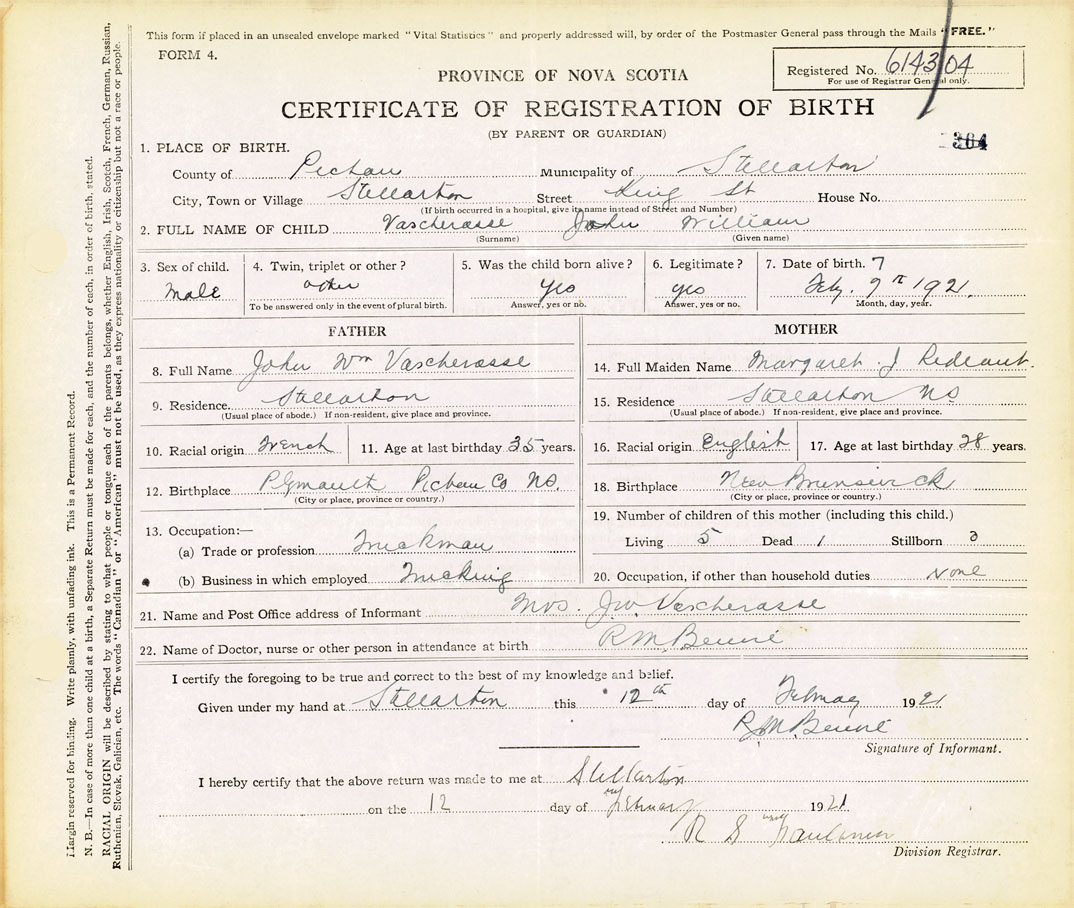 This form if placed in an unsealed envelope marked "Vital Statistics" and properly addressed will, by order of the Postmaster General pass through the Mails "FREE."
FORM 4.
Registered No. 6143104
For use of Registrar General only.
PROVINCE OF NOVA SCOTIA
CERTIFICATE OF REGISTRATION OF BIRTH
(BY PARENT OR GUARDIAN)
304
1. PLACE OF BIRTH.
County of Pictou Municipality of Stellarton
City, Town or Village Stellarton Street King St House No.
(If birth occurred in a hospital, give its name instead of Street and Number)
2. FULL NAME OF CHILD Vascherasse John William
(Surname) (Given name)
3. Sex of child. 4. Twin, triplet or other? 5. Was the child born alive? 6. Legitimate? 7. Date of birth. 7
Male other yes yes Feby. 9th 1921
To be answered only in the event of plural birth. Answer, yes or no. Answer, yes or no. Month, day, year.
FATHER
8. Full Name John Wm Vascherasse
9. Residence. Stellarton
(Usual place of abode.) If non-resident, give place and province.
10. Racial origin French 11. Age at last birthday 35 years.
12. Birthplace Plymouth Pictou Co NS.
(City or place, province or country.)
13. Occupation:—
(a) Trade or profession Truckman
(b) Business in which employed Trucking
MOTHER
14. Full Maiden Name Margaret J
15. Residence Stellarton NS
(Usual place of abode.) If non-resident, give place and province.
16. Racial origin English 17. Age at last birthday 28 years.
18. Birthplace New Brunswick
(City or place, province or country.)
19. Number of children of this mother (including this child.)
Living 5 Dead 1 Stillborn
20. Occupation, if other than household duties None
21. Name and Post Office address of Informant Mrs. J W Vascherasse
22. Name of Doctor, nurse or other person in attendance at birth R M Benvie
I certify the foregoing to be true and correct to the best of my knowledge and belief.
Given under my hand at Stellarton this 12th day of February 1921
R M Benvie
Signature of Informant.
I hereby certify that the above return was made to me at Stellarton
on the 12 day of February 1921
R S
Division Registrar.
Margin reserved for binding. Write plainly, with unfading ink. This is a Permanent Record.
N. B.—In case of more than one child at a birth, a Separate Return must be made for each, and the number of each, in order of birth, stated.
RACIAL ORIGIN will be described by stating to what people or tongue each of the parents belongs, whether English, Irish, Scotch, French, German, Russian,
Ruthenian, Slovak, Galician, etc. The words "Canadian" or "American" must not be used, as they express nationality or citizenship but not a race or people.